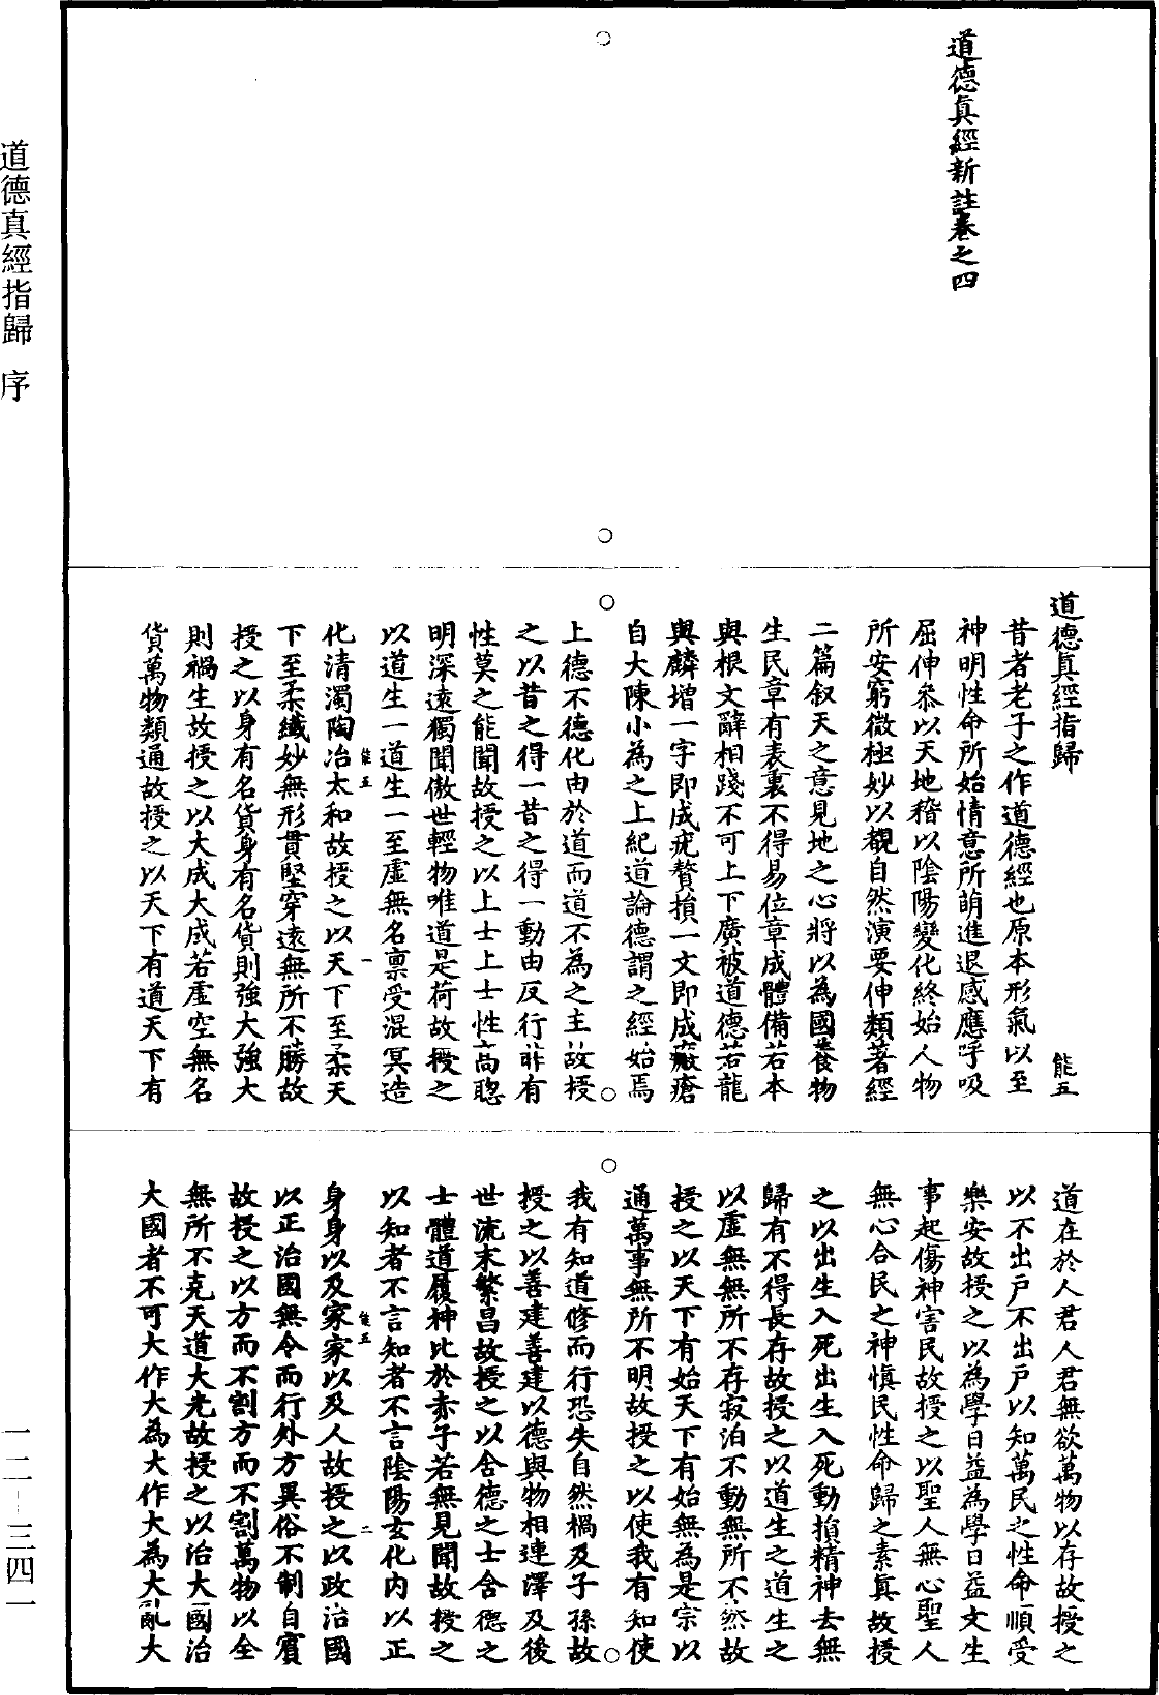 道德真經新註卷之四
道德真經指歸 能五
昔者老子之作道德經也原本形氣以至
神明性命所始情意所萌進退感應呼吸
屈伸叅以天地稽以陰陽變化終始人物
所安窮微極妙以覩自然演要伸類著經
二篇叙天之意見地之心將以為國養物
生民章有表裏不得易位章成體備若本
與根文辭相踐不可上下廣被道德若龍
與麟增一字即成疣贅損一文即成瘢瘡
自大陳小為之上紀道論德謂之經始焉
上德不德化由於道而道不為之主故授
之以昔之得一昔之得一動由反行非有
性莫之能聞故授之以上士上士性高聰
明深遠獨聞傲世輕物唯道是荷故授之
以道生一道生一至虛無名禀受混冥造
能五 一
化清濁陶冶太和故授之以天下至柔天
下至柔纖妙無形貫堅穿遠無所不勝故
授之以身有名貨身有名貨則強大強大
則禍生故授之以大成大成若虛空無名
貨萬物類通故授之以天下有道天下有
道在於人君人君無欲萬物以存故授之
以不出戶不出戶以知萬民之性命順受
樂安故授之以為學日益為學日益文生
事起傷神害民故授之以聖人無心聖人
無心合民之神慎民性命歸之素真故授
之以出生入死出生入死動損精神去無
歸有不得長存故授之以道生之道生之
以虛無無所不存寂泊不動無所不然故
授之以天下有始天下有始無為是宗以
通萬事無所不明故授之以使我有知使
我有知道修而行恐失自然禍及子孫故
授之以善建善建以德與物相連澤及後
世流末繁昌故授之以含德之士含德之
士體道履神比於赤子若無見聞故授之
以知者不言知者不言陰陽玄化內以正
能五 二
身身以及家家以及人故授之以政治國
以正治國無令而行外方異俗不制自賓
故授之以方而不割方而不割萬物以全
無所不克天道大光故授之以治大國治
大國者不可大作大為大作大為大亂大
道德真經指歸 序
一二－三四一